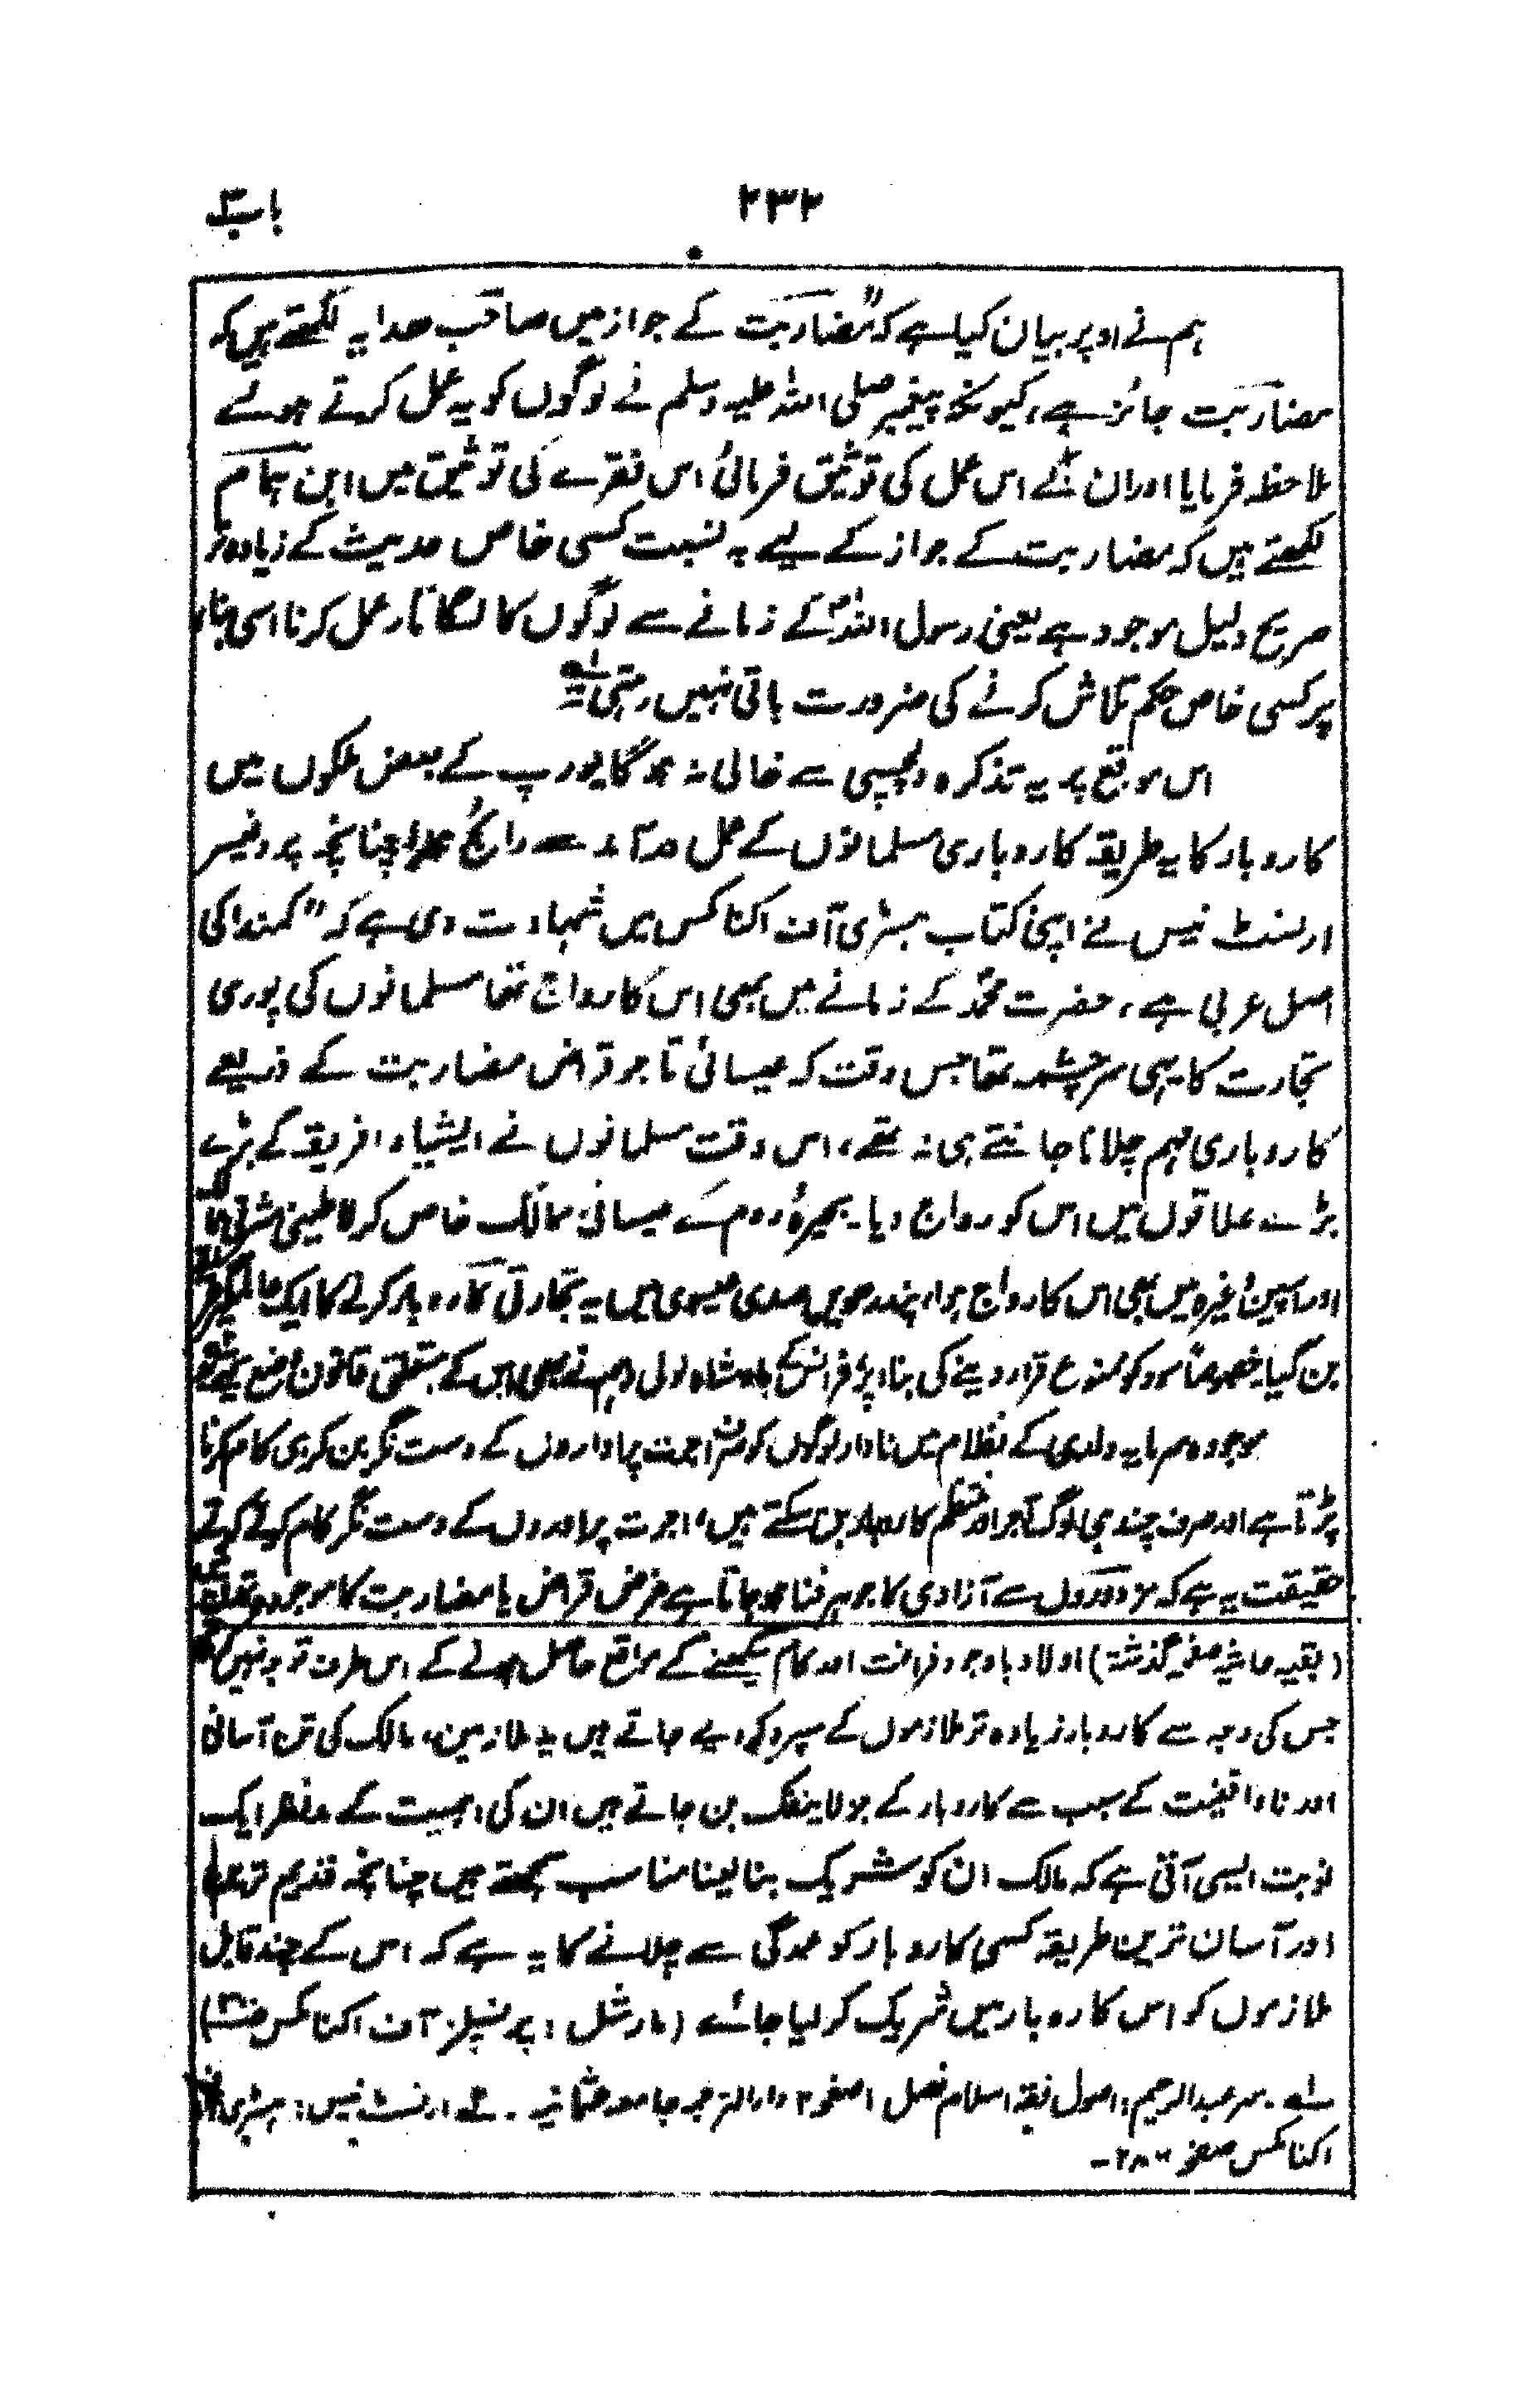 ۲۳۲
باب۳
ہم نے اوپر بیان کیا ہے کہ "مضاربت کے جواز میں صاحب ھدایہ لکھتے ہیں کہ
مضاربت جائز ہے، کیونکہ پیغمبر صلی اللہ علیہ وسلم نے لوگوں کو یہ عمل کرتے ہوئے
ملاحظہ فرمایا اور ان کے اس عمل کی توثیق فرمائی اس فقرے کی توثیق میں ابن ہمام
لکھتے ہیں کہ مضاربت کے جواز کے لیے بہ نسبت کسی خاص حدیث کے زیادہ تر
صریح دلیل موجود ہے یعنی رسول اللہؐ کے زمانے سے لوگوں کا لگاتار عمل کرنا اسی بناء
پر کسی خاص حکم تلاش کرنے کی ضرورت باقی نہیں رہتی"
اس موقع پر یہ تذکرہ دلچسپی سے خالی نہ ہوگا یورپ کے بعض ملکوں میں
کاروبار کا یہ طریقہ کاروباری مسلمانوں کے عمل درآمد سے رائج ہوا چنانچہ پروفیسر
ارنسٹ نیس نے اپنی کتاب ہسٹری آف اکنامکس میں شہادت دی ہے کہ "کمندا کی
اصل عربی ہے، حضرت محمدؐ کے زمانے میں بھی اس کا رواج تھا مسلمانوں کی پوری
تجارت کا یہی سرچشمہ تھا جس وقت کہ عیسائی تاجر قراض مضاربت کے ذریعے
کاروباری مہم چلانا جانتے ہی نہ تھے، اس وقت مسلمانوں نے ایشیاء افریقہ کے بڑے
بڑے علاقوں میں اس کو رواج دیا۔ بحیرۂ روم کے عیسائی ممالک خاص کر لاطینی مشرق
اور اسپین وغیرہ میں بھی اس کا رواج ہوا، پندرھویں صدی عیسوی میں یہ تجارتی کاروبار کرنے کا ایک عالمگیر
بن گیا۔ خصوصاً سود کو ممنوع قرار دینے کی بناء پر فرانس کے بادشاہ لوئی دہم نے بھی اس کے متعلق قانون وضع کیے تھے
موجودہ سرمایہ داری کے نظام میں نادار لوگوں کو صرف اجرت پر اداروں کے دست نگر بن کر ہی کام کرنا
پڑتا ہے اور صرف چند ہی لوگ آجر اور منتظم کاروبار بن سکتے ہیں، اجرت پر اوروں کے دست نگر کام کرتے کرتے
حقیقت یہ ہے کہ مزدوروں سے آزادی کا جوہر فنا ہو جاتا ہے غرض قراض یا مضاربت کا موجودہ
(بقیہ حاشیہ صفحہ گذشتہ) اولاد باوجود فراغت اور کام سیکھنے کے مواقع حاصل ہونے کے اس طرف توجہ نہیں
جس کی وجہ سے کاروبار زیادہ تر ملازموں کے سپرد کر دیے جاتے ہیں یہ ملازمین، مالک کی تن آسانی
اور ناواقفیت کے سبب سے کاروبار کے جزو لاینفک بن جاتے ہیں ان کی اہمیت کے مدنظر ایک
نوبت ایسی آتی ہے کہ مالک ان کو شریک بنا لینا مناسب سمجھتے ہیں چنانچہ قدیم ترین
اور آسان ترین طریقہ کسی کاروبار کو عمدگی سے چلانے کا یہ ہے کہ اس کے چند قابل
ملازموں کو اس کاروبار میں شریک کر لیا جائے (مارشل : پرنسپلز آف اکنامکس
لہ۔ سر عبدالرحیم: اصول فقہ اسلام فصل اصفحہ ۲ دارالترجمہ جامعہ عثمانیہ۔ ۲ہ ارنسٹ نیس: ہسٹری آف
اکنامکس صفحہ ۲۸۰۔